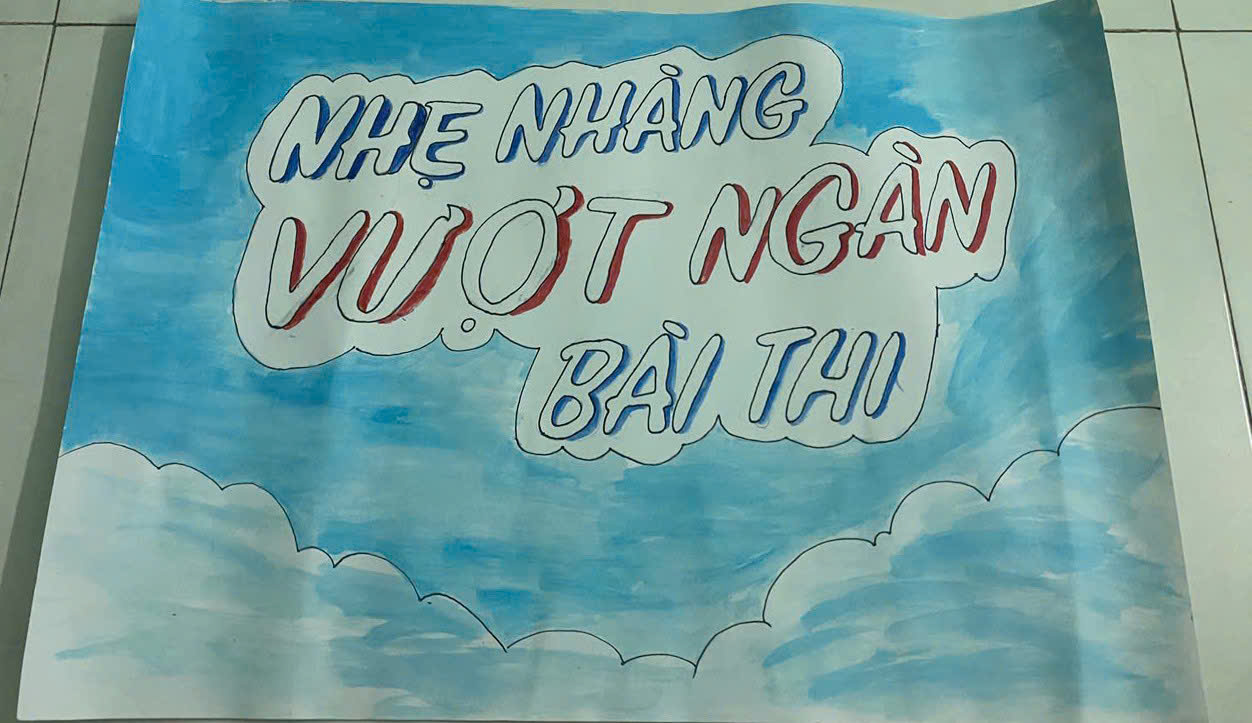 NHẸ NHÀNG
VƯỢT NGÀN
BÀI THI